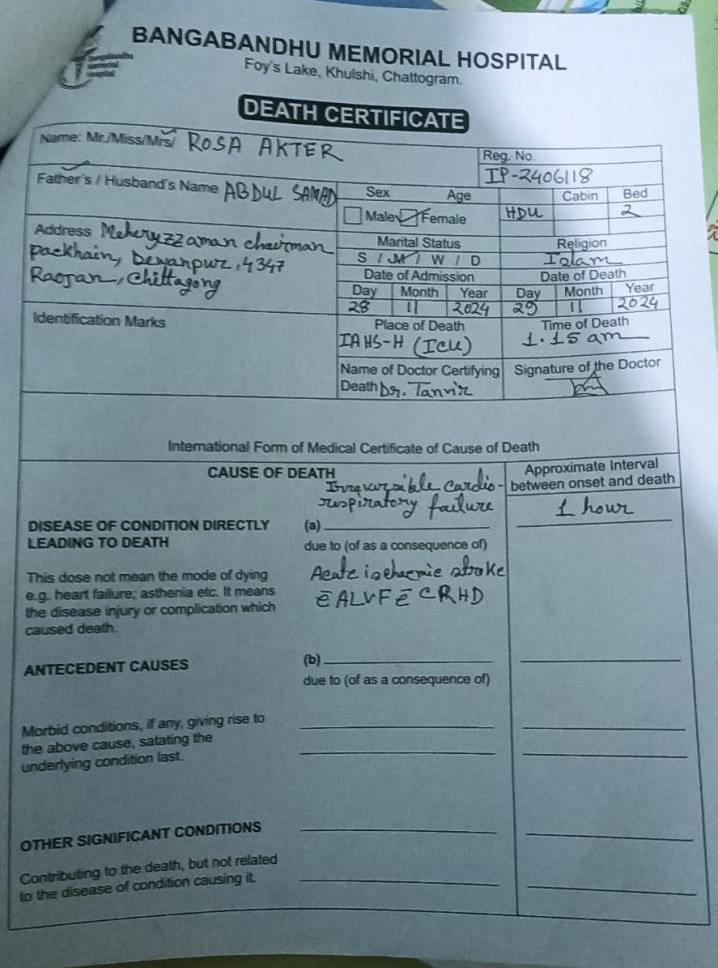 Bangabandhu
Memorial
Hospital
BANGABANDHU MEMORIAL HOSPITAL
Foy's Lake, Khulshi, Chattogram.
DEATH CERTIFICATE
Name: Mr./Miss/Mrs/ ROSA AKTER
Reg. No.
IP-2406118
Father's / Husband's Name ABDUL SAMAD
Sex Age Cabin Bed
Male Female HDU 2
Address Meheryzzaman chairman
Packhain, Dewanpur, 4347
Raojan, Chittagong
Marital Status Religion
S / M / W / D Islam
Date of Admission Date of Death
Day Month Year Day Month Year
28 11 2024 29 11 2024
Identification Marks
Place of Death Time of Death
IAHS-H (ICU) 1.15 am
Name of Doctor Certifying Signature of the Doctor
Death Dr. Tanvir
International Form of Medical Certificate of Cause of Death
CAUSE OF DEATH Approximate Interval
between onset and death
Irreversible cardio-
respiratory failure 1 hour
DISEASE OF CONDITION DIRECTLY (a)
LEADING TO DEATH due to (of as a consequence of)
This dose not mean the mode of dying Acute ischaemic stroke
e.g. heart failure; asthenia etc. It means c̄ ALVF c̄ CRHD
the disease injury or complication which
caused death.
ANTECEDENT CAUSES (b)
due to (of as a consequence of)
Morbid conditions, if any, giving rise to
the above cause, satating the
underlying condition last.
OTHER SIGNIFICANT CONDITIONS
Contributing to the death, but not related
to the disease of condition causing it.